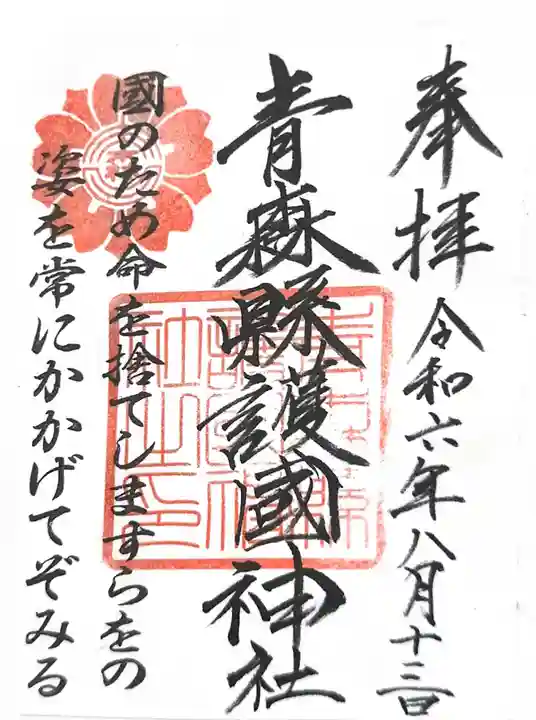 奉拝 令和六年八月十三日
青森縣護國神社
國のため命を捨てしますらをの
姿を常にかかげてぞみる